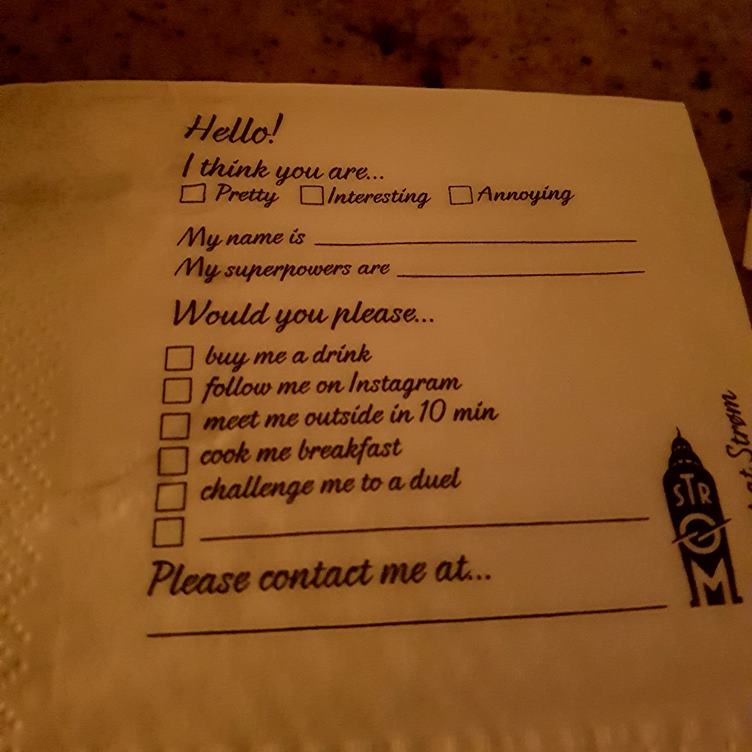 Hello!
I think you are...
Pretty Interesting Annoying
My name is
My superpowers are
Would you please...
buy me a drink
follow me on Instagram
meet me outside in 10 min
cook me breakfast
challenge me to a duel
Please contact me at...
STR
Ø
M
Strøm